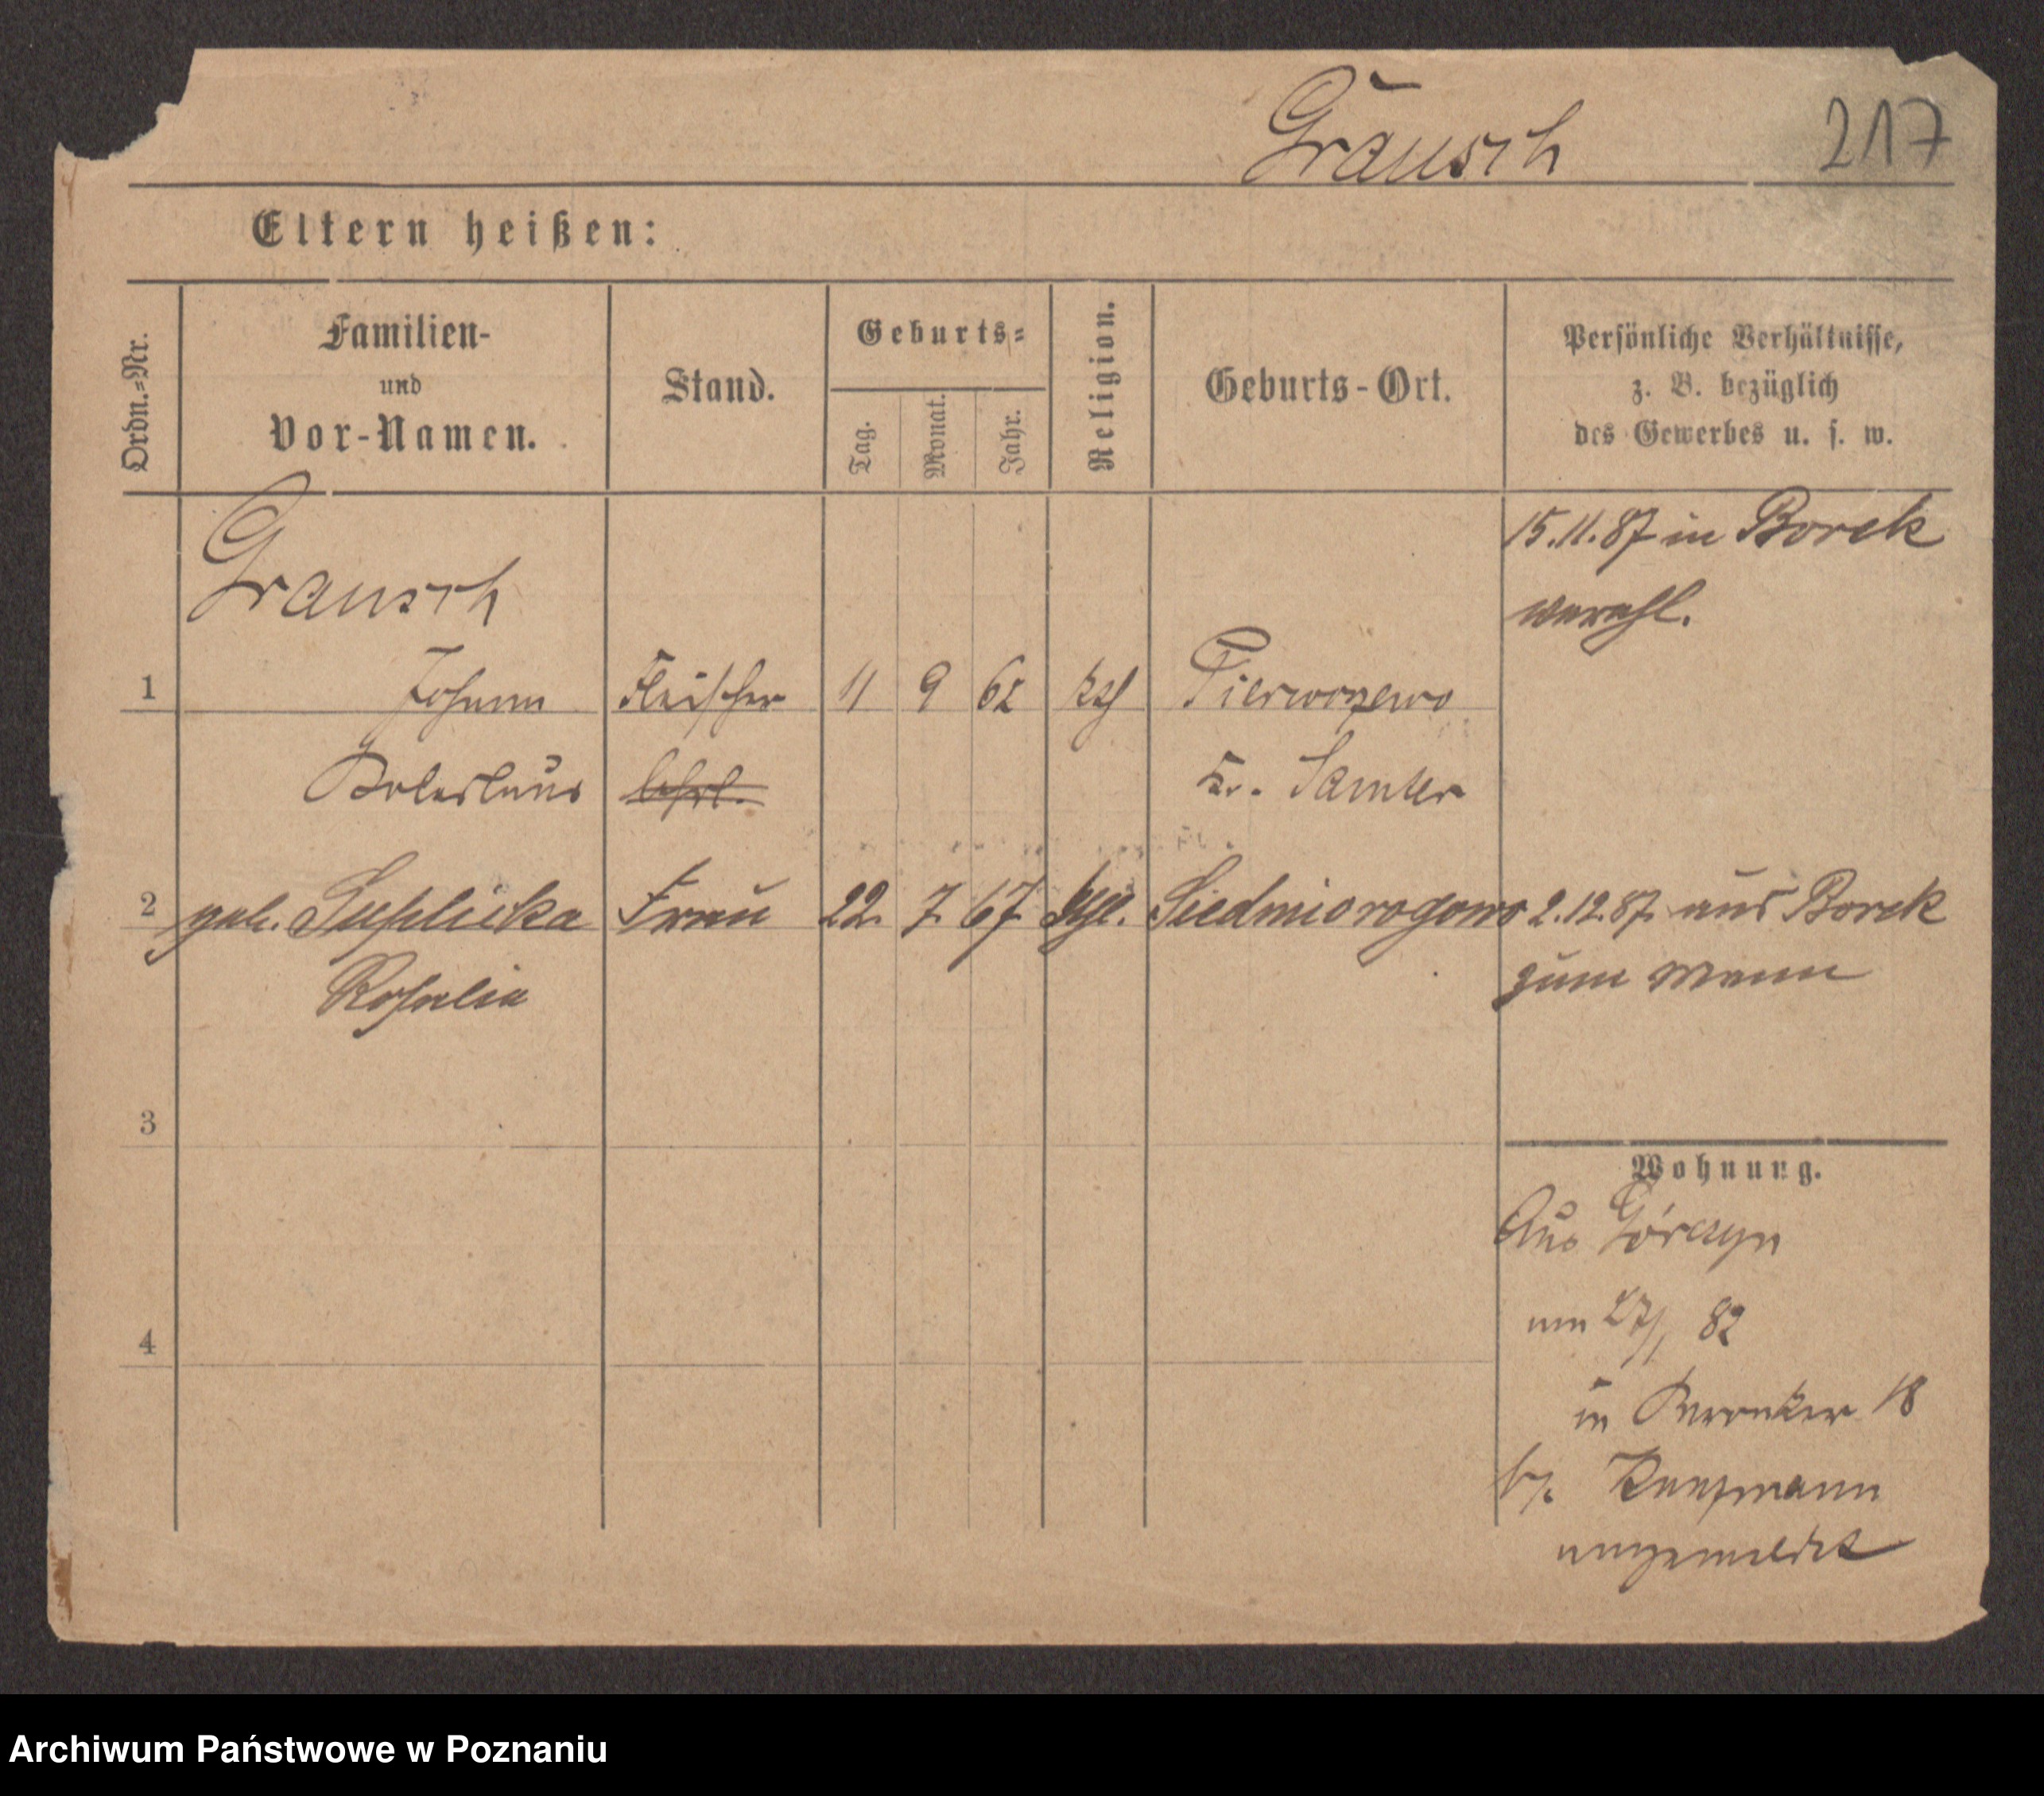 Grausch 217
Eltern heißen:
Ordn.=Nr.
Familien-
und
Vor-Namen.
Stand.
Geburts=
Tag.
Monat.
Jahr.
Religion.
Geburts-Ort.
Persönliche Verhältnisse,
z. B. bezüglich
des Gewerbes u. s. w.
Grausch
15.11.87 in Borek
verehl.
1 Johann Fleischer 11 9 62 kth
Boleslaus lehrl. Kr. Samter
2 geb. Frau 22. 7. 67. Siedmiorogowo 2.12.87. aus Borek
Rosalia zum Mann
3
4
Wohnung.
Aus Górczyn
am 27/1 82
in 18
b/. Kaufmann
angemeldet
Archiwum Państwowe w Poznaniu